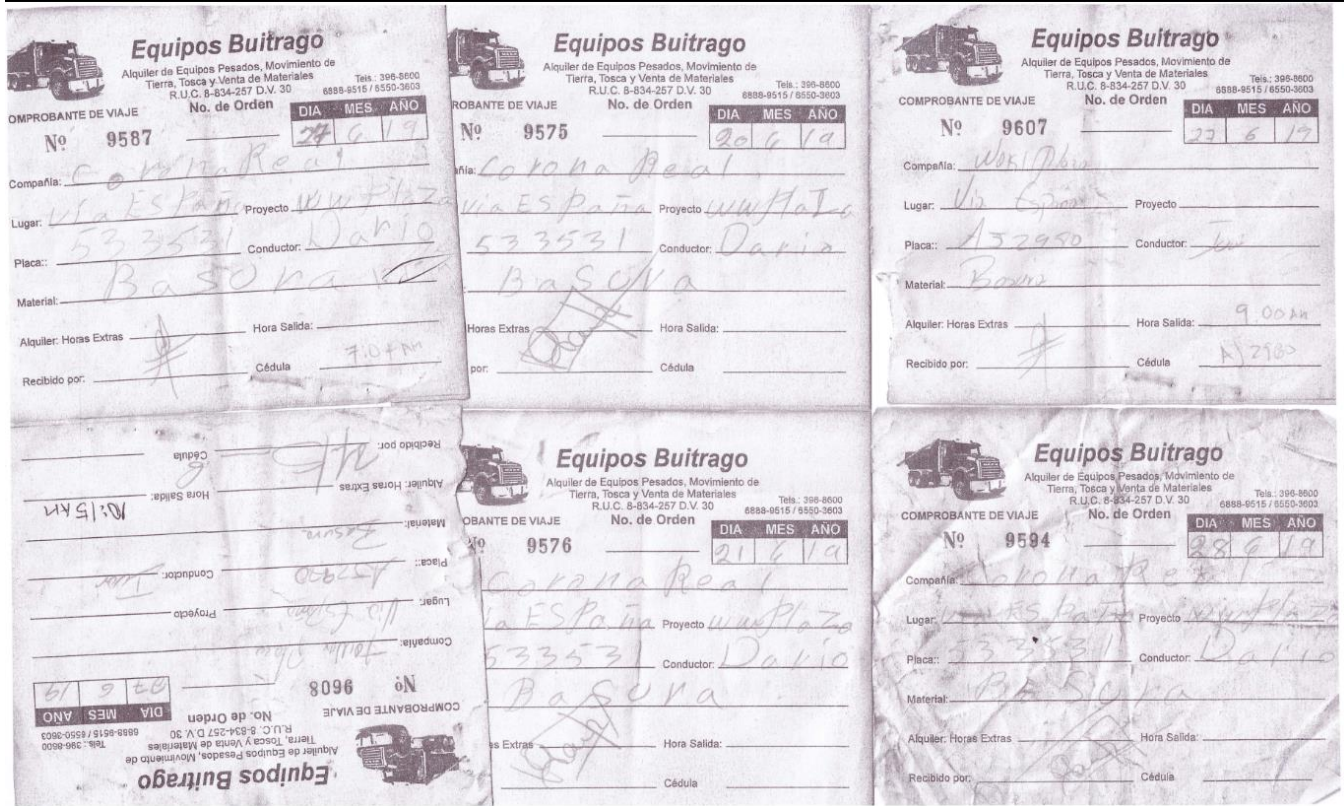 Equipos Buitrago
Alquiler de Equipos Pesados, Movimiento de
Tierra, Tosca y Venta de Materiales
R.U.C. 8-834-257 D.V. 30
Tels.: 396-8600
6888-9515 / 6550-3603
OMPROBANTE DE VIAJE No. de Orden
DIA MES AÑO
Nº 9587
27 6 19
Compañía: Corona Real
Lugar: Vía ESPaña Proyecto WWPlaza
Placa:: 533531 Conductor: Dario
Material: BaSura
Alquiler: Horas Extras Hora Salida:
Recibido por: Cédula
Equipos Buitrago
Alquiler de Equipos Pesados, Movimiento de
Tierra, Tosca y Venta de Materiales
R.U.C. 8-834-257 D.V. 30
Tels.: 396-8600
6888-9515 / 6550-3603
ROBANTE DE VIAJE No. de Orden
DIA MES AÑO
Nº 9575
20 6 19
ñía: Corona Real
Vía ESPaña Proyecto
533531 Conductor: Dario
BaSura
Horas Extras Hora Salida:
por: Cédula
Equipos Buitrago
Alquiler de Equipos Pesados, Movimiento de
Tierra, Tosca y Venta de Materiales
R.U.C. 8-834-257 D.V. 30
Tels.: 396-8600
6888-9515 / 6550-3603
COMPROBANTE DE VIAJE No. de Orden
DIA MES AÑO
Nº 9607
27 6 19
Compañía:
Lugar: Via España Proyecto
Placa:: A52980 Conductor:
Material: Basura
Alquiler: Horas Extras Hora Salida: 9.00 AM
Recibido por: Cédula
Equipos Buitrago
Alquiler de Equipos Pesados, Movimiento de
Tierra, Tosca y Venta de Materiales
R.U.C. 8-834-257 D.V. 30
Tels.: 396-8600
6888-9515 / 6550-3603
COMPROBANTE DE VIAJE No. de Orden
DIA MES AÑO
Nº 9608
27 6 19
Compañía:
Lugar: Via España Proyecto
Placa:: Conductor:
Material: Basura
Alquiler: Horas Extras Hora Salida: 10:15 AM
Recibido por: Cédula
Equipos Buitrago
Alquiler de Equipos Pesados, Movimiento de
Tierra, Tosca y Venta de Materiales
R.U.C. 8-834-257 D.V. 30
Tels.: 396-8600
6888-9515 / 6550-3603
OBANTE DE VIAJE No. de Orden
DIA MES AÑO
Nº 9576
21 6 19
Corona Real
ía ESPaña Proyecto wwPlaza
533531 Conductor: Dario
BaSura
as Extras Hora Salida:
Cédula
Equipos Buitrago
Alquiler de Equipos Pesados, Movimiento de
Tierra, Tosca y Venta de Materiales
R.U.C. 8-834-257 D.V. 30
Tels.: 396-8600
6888-9515 / 6550-3603
COMPROBANTE DE VIAJE No. de Orden
DIA MES AÑO
Nº 9594
28 6 19
Compañía: Corona Real
Lugar: ESPaña Proyecto wwPlaz
Placa:: 533531 Conductor: Dario
Material: BaSura
Alquiler: Horas Extras Hora Salida:
Recibido por: Cédula